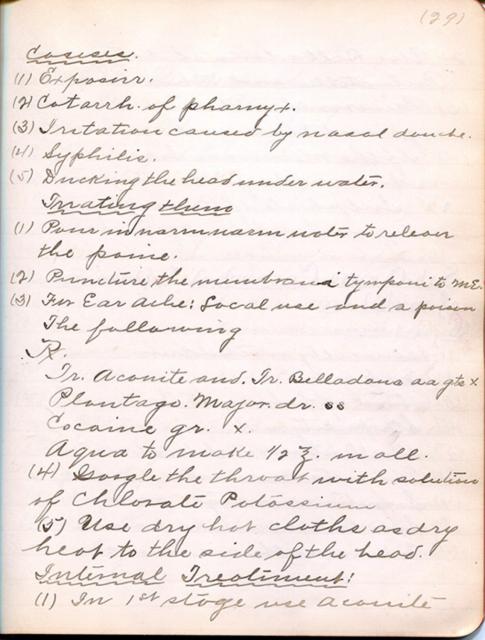 (29)
Causes.
(1) Exposure.
(2) Catarrh. of pharnyx.
(3) Irritation caused by nasal douche.
(4) Syphilis.
(5) Ducking the head under water.
Treating them
(1) Pour in warm warm water to releave
the paine.
(2) Puncture the membrana tympani to M.E.
(3) For Ear Ache: Local use and a poison
The following
Rx.
Tr. Aconite and. Tr. Belladona aa gts x
Plantago. Major. dr. ss
Cocaine gr. x.
Aqua to make 1/2 ℥. in all.
(4) Goargle the throat with solution
of Chlorate Potassium
(5) Use dry hot cloths as dry
heat to the side of the head.
Internal Treatiment:
(1) In 1st stage use aconite